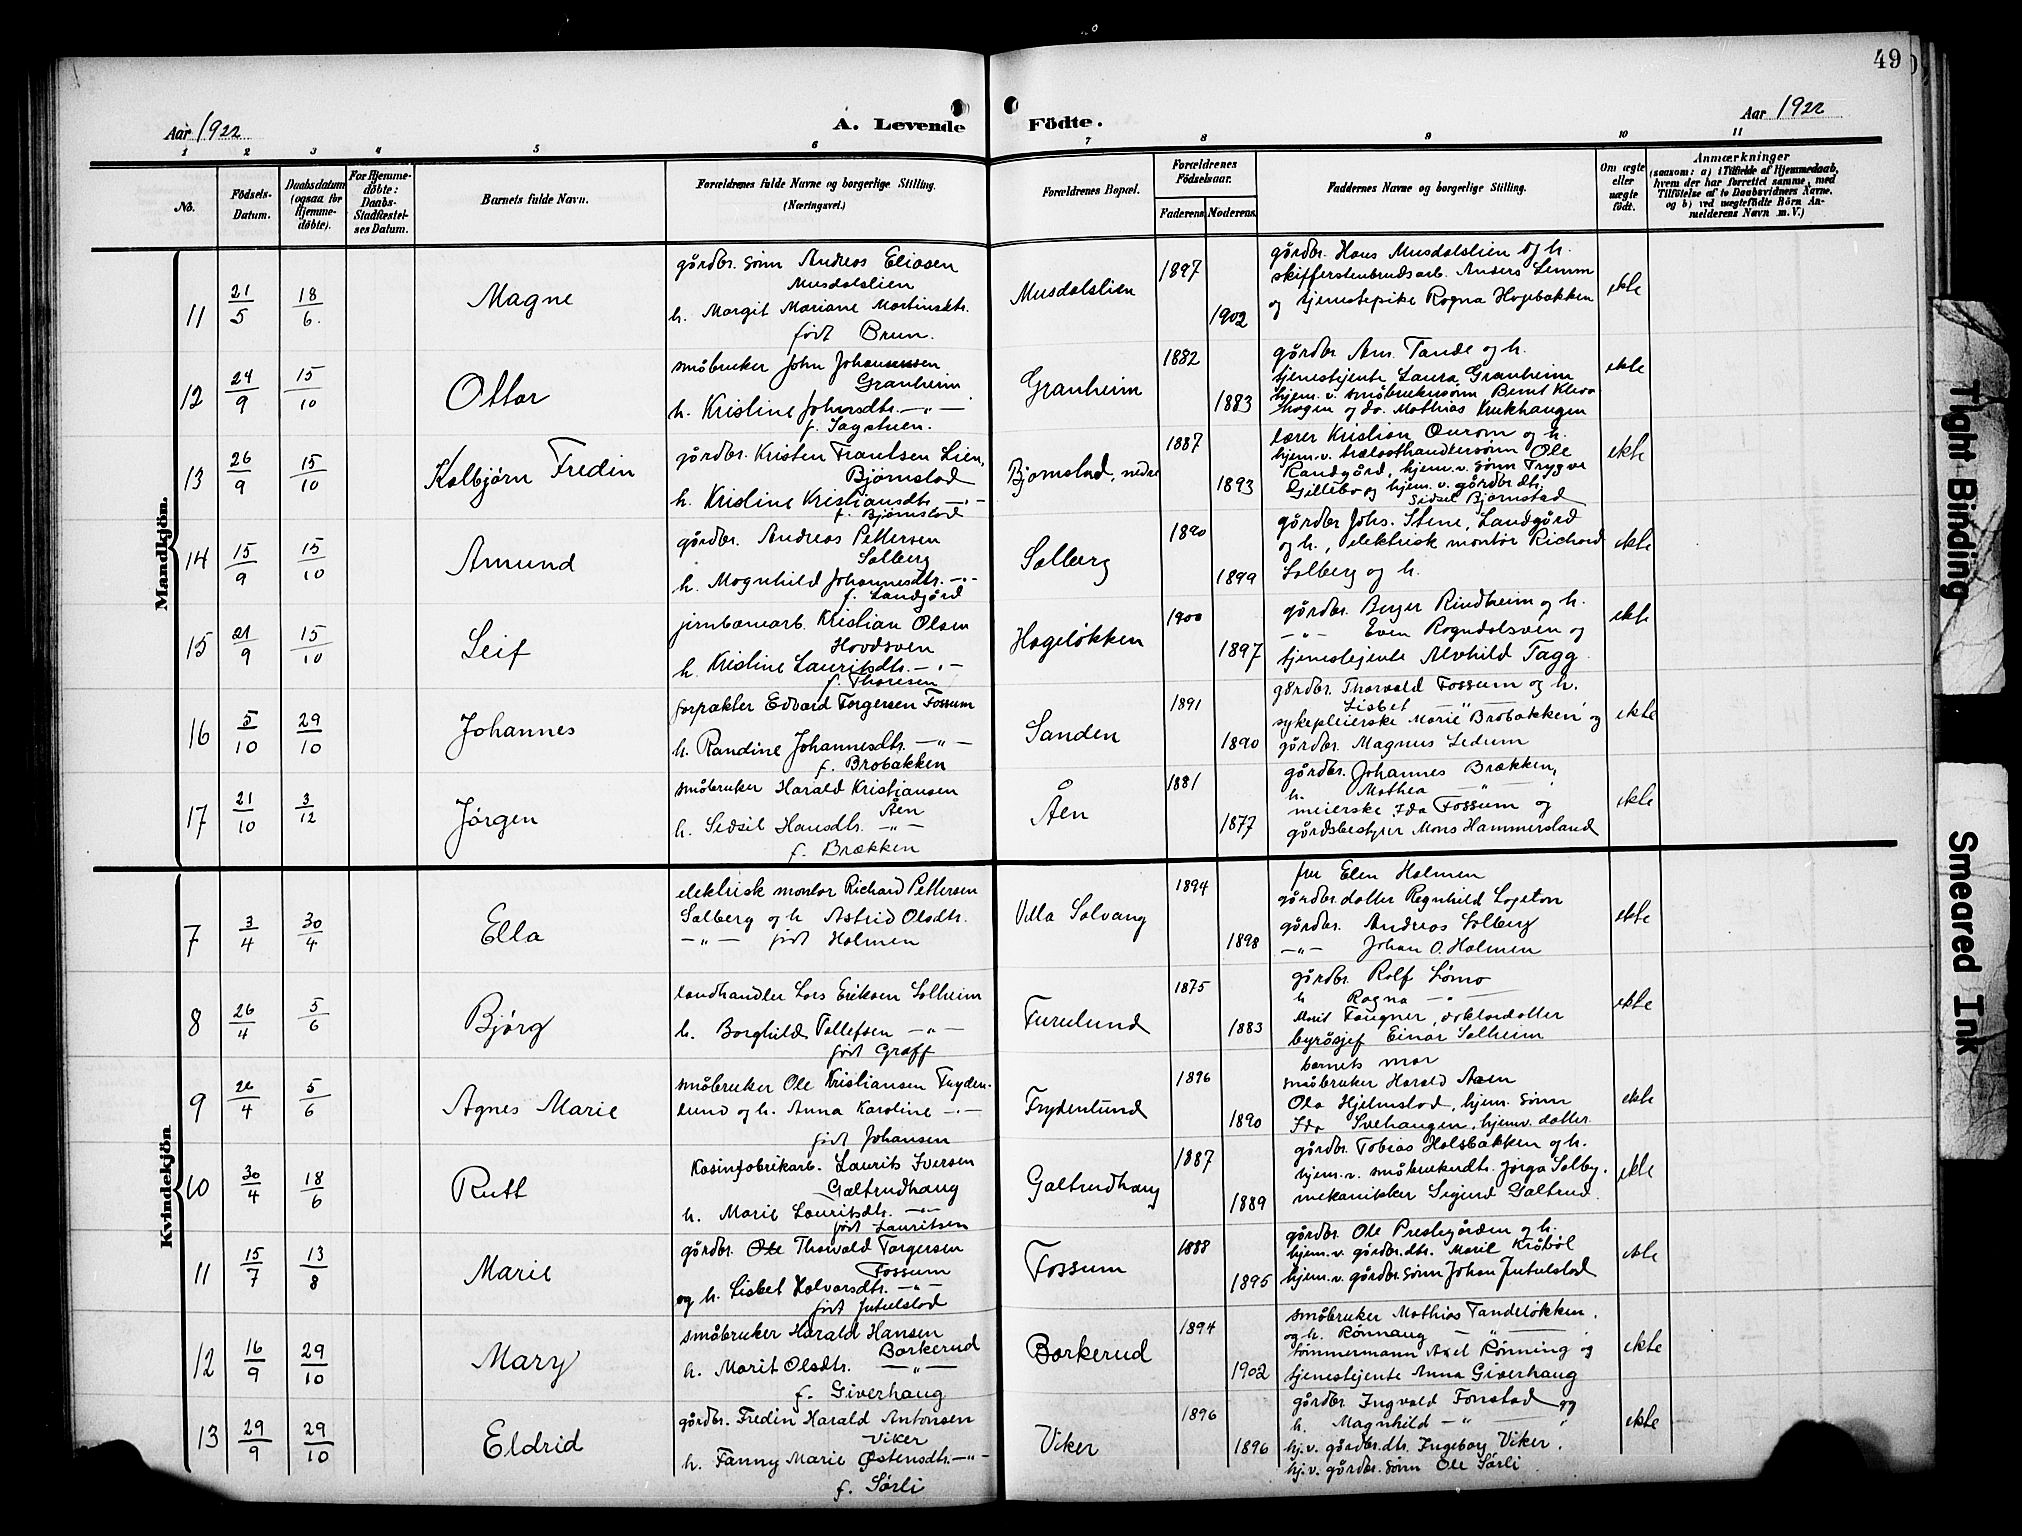 49
Aar 1922
A. Levende
Födte.
Aar 1922
1 2 3 4 5 6 7 8 9 10 11
No.
Födsels-
Datum.
Daabsdatum
(ogsaa for
Hjemme-
döbte).
For Hjemme-
döbte:
Daabs-
Stadfæstel-
ses Datum.
Barnets fulde Navn.
Forældrenes fulde Navne og borgerlige Stilling.
(Næringsvei.)
Forældrenes Bopæl.
Forældrenes
Födselsaar.
Faderens
Moderens
Faddernes Navne og borgerlige Stilling.
Om ægte
eller
uægte
födt.
Anmærkninger
(saasom: a) i Tilfælde af Hjemmedaab,
hvem der har forrettet samme, med
Tilföielse af to Daabsvidners Navne,
og b) ved uægtefödte Börn An-
melderens Navn m. V.)
Mandkjön.
11
21/5
18/6
Magne
gårdbr. sønn Andreas Eliasen
Musdalslien
h. Margit Mariane Martinsdtr.
født Brun.
Musdalslien
1897
1902
gårdbr. Hans Musdalslien og h.
skifferstenbrudsarb. Anders Lunm
og tjenestepike Ragna Hagebakken
ekte
12
24/9
15/10
Ottar
småbruker John Johansen
Granheim
h. Kristine Johansdtr. —"—
f. Sagstuen.
Granheim
1882
1883
gårdbr. Ant. Tande og h.
tjenestejente Laura Granheim
hjem.v. småbrukersønn Bernt Kleva
hagen og do. Mathias Krukhaugen
ekte
13
26/9
15/10
Kolbjørn Fredin
gårdbr. Kristen Frantsen Lien,
Bjørnstad
h. Kristine Kristiansdtr. —"—
f. Bjørnstad
Bjørnstad, nedre
1887
1893
lærer Kristian Aurom og h.
hjem.v. trælasthandlersønn Ole
Randgård, hjem.v. sønn Trygve
Gillebo og hjem.v. gårdbr.dtr.
Sidsel Bjørnstad
ekte
14
15/9
15/10
Amund
gårdbr. Andreas Pettersen
Solberg
h. Magnhild Johannesdtr. —"—
f. Landgård
Solberg
1890
1899
gårdbr. Johs. Stene, Landgård
og h., elektrisk montør Richard
Solberg og h.
ekte
15
21/9
15/10
Leif
jernbanearb. Kristian Olsen
Hovdsveen
h. Kristine Lauritsdtr. —"—
f. Thoresen
Hageløkken
1900
1897
gårdbr. Berger Rindheim og h.
—"— Even Rogndalsven og
tjenestejente Alvhild Tagg.
ekte
16
5/10
29/10
Johannes
forpakter Edvard Torgersen Fossum
h. Randine Johannesdtr. —"—
f. Brobakken
Sanden
1891
1890
gårdbr. Thorvald Fossum og h.
Lisbet —"—
sykepleierske Marie Brobakken og
gårdbr. Magnus Sedum
ekte
17
21/10
3/12
Jørgen
småbruker Harald Kristiansen
Åen
h. Sidsil Hansdtr. —"—
f. Brækken
Åen
1881
1877
gårdbr. Johannes Brækken,
h. Mathea —"—
meierske Ida Fossum og
gårdsbestyrer Mons Hammersland
ekte
Kvindekjön.
7
3/4
30/4
Ella
elektrisk montør Richard Pettersen
Solberg og h Astrid Olsdtr.
—"— født Holmen
Villa Solvang
1894
1898
fru Elen Holmen
gårdbr.datter Regnhild Løgston
gårdbr. Andreas Solberg
—"— Johan O. Holmen
ekte
8
26/4
5/6
Bjørg
landhandler Lars Eriksen Solheim
h. Borghild Tollefsen —"—
født Graff
Furulund
1875
1883
gårdbr. Rolf Lømo
h Ragna —"—
Marit Faugner, doktordatter
byråsjef Einar Solheim
barnets mor
ekte
9
26/4
5/6
Agnes Marie
småbruker Ole Kristiansen Fryden-
lund og h. Anna Karoline —"—
født Johansen
Frydenlund
1896
1890
småbruker Harald Aaen
Ola Hjelmstad, hjem. sønn
Ida Svehaugen, hjemv. datter
ekte
10
30/4
18/6
Rutt
Kasinfabrikarb. Laurits Iversen
Galtrudhaug
h. Marie Lauritsdtr. —"—
født Lauritsen
Galtrudhaug
1887
1889
gårdbr. Tobias Holsbakken og h.
hjem.v. småbrukerdtr. Jørga Solby.
mekanikker Sigurd Galtrud.
ekte
11
15/7
13/8
Marie
gårdbr. Ole Thorvald Torgersen
Fossum
og h. Lisbet Halvorsdtr. —"—
født Jutulstad
Fossum
1888
1895
gårdbr. Ole Prestegården og h.
hjem.v. gårdbr.dtr. Marie Kråbøl
hjem.v. gårdbr.sønn Johan Jutulstad
ekte
12
16/9
29/10
Mary
småbruker Harald Hansen
Borkerud
h. Marit Olsdtr. —"—
f. Giverhaug
Borkerud
1894
1902
småbruker Mathias Tandeløkken,
og h. Rønnaug —"—
tømmermann Axel Rønning og
tjenestejente Anna Giverhaug
ekte
13
29/9
29/10
Eldrid
gårdbr. Fredin Harald Antonsen
Viker
h. Fanny Marie Østensdtr. —"—
f. Sørli
Viker
1896
1896
gårdbr. Ingvald Fonstad og
h. Magnhild —"—
hj.v. gårdbr.dtr. Ingeborg Viker.
hj.v. gårdbr.sønn Ole Sørli
ekte
Tight Binding
Smeared Ink